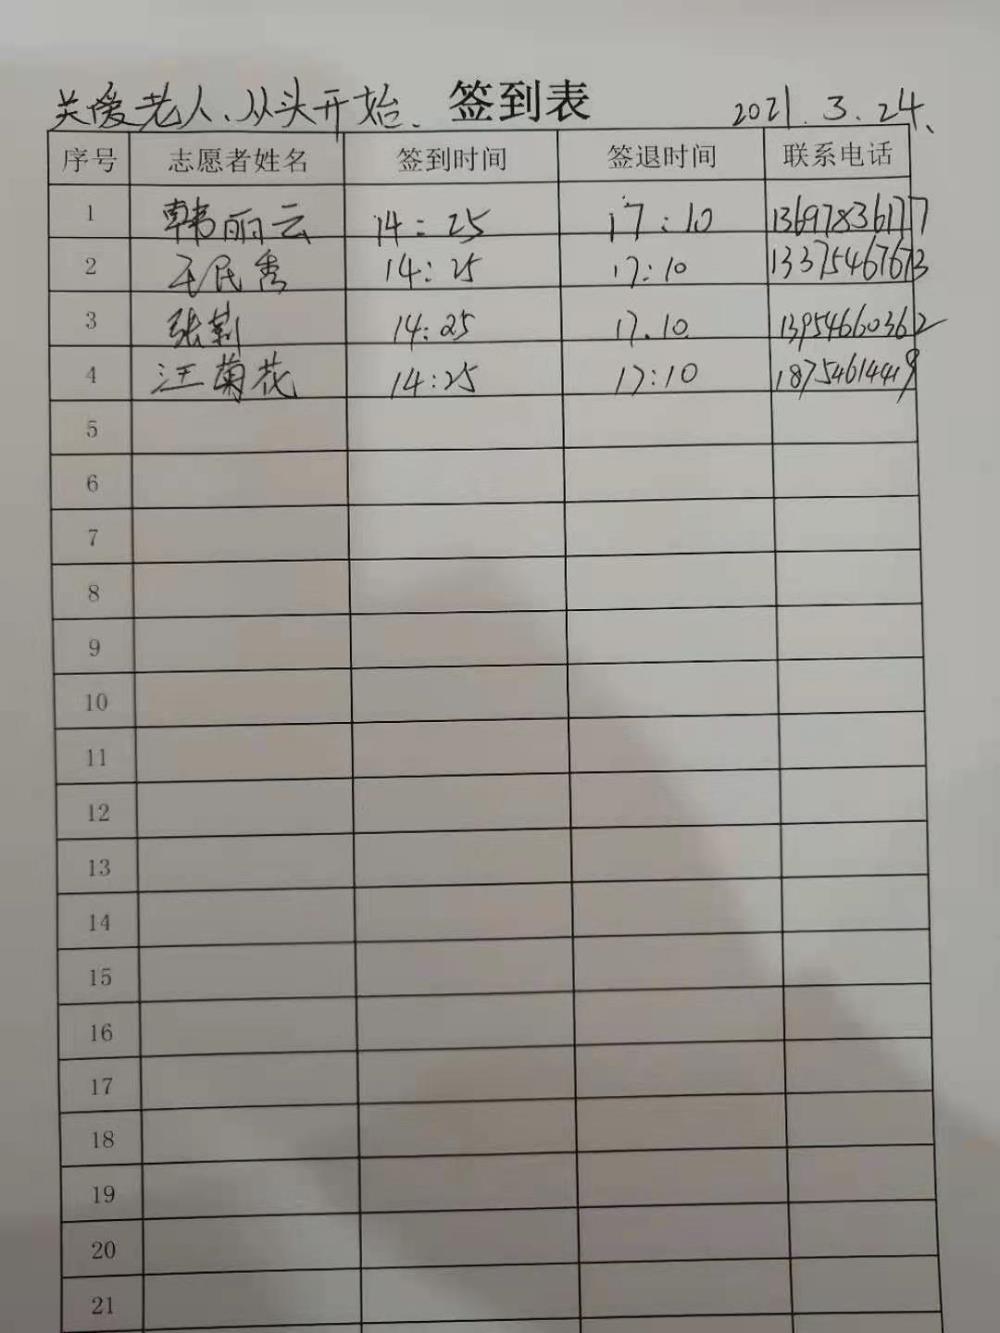 关爱老人、从头开始、 签到表 2021.3.24、
序号 志愿者姓名 签到时间 签退时间 联系电话
1 韩丽云 14:25 17:10 13697836177
2 王民秀 14:25 17:10 13375467673
3 张莉 14:25 17.10 13954660362
4 汪菊花 14:25 17:10 18754614419
5
6
7
8
9
10
11
12
13
14
15
16
17
18
19
20
21